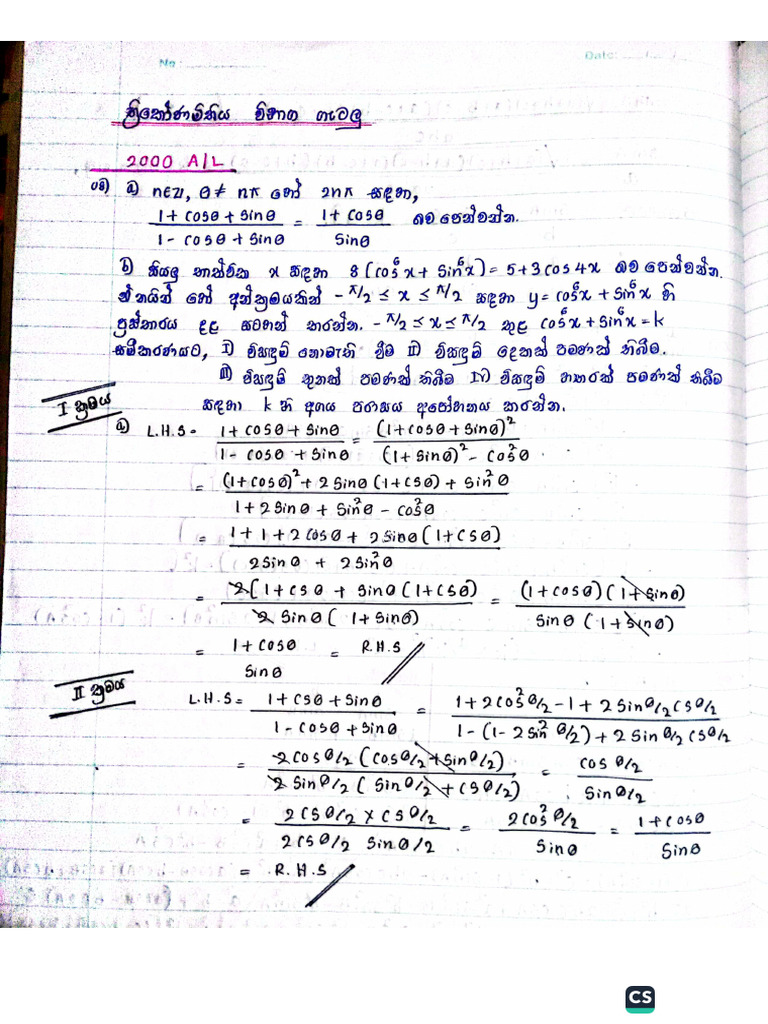 No :
Date: / /
ත්‍රිකෝණමිතිය විභාග ගැටලු
2000 A/L
08) a) n∈ℤ, θ ≠ nπ හෝ 2nπ සඳහා,
(1 + cosθ + sinθ)/(1 - cosθ + sinθ) = (1 + cosθ)/sinθ බව පෙන්වන්න.
b) සියලු තාත්වික x සඳහා 8(cos⁶x + sin⁶x) = 5 + 3cos4x බව පෙන්වන්න.
ඒනයින් හෝ අන්ක්‍රමයකින් -π/2 ≤ x ≤ π/2 සඳහා y = cos⁶x + sin⁶x හි
ප්‍රස්තාරය දළ සටහන් කරන්න. -π/2 ≤ x ≤ π/2 තුළ cos⁶x + sin⁶x = k
සමීකරණයට, I) විසඳුම් නොමැති වීම II) විසඳුම් දෙකක් පමණක් තිබීම.
III) විසඳුම් තුනක් පමණක් තිබීම IV) විසඳුම් හතරක් පමණක් තිබීම
සඳහා k හි අගය පරාසය අපෝහනය කරන්න.
I ක්‍රමය
a) L.H.S = (1 + cosθ + sinθ)/(1 - cosθ + sinθ) = (1 + cosθ + sinθ)²/((1 + sinθ)² - cos²θ)
= ((1 + cosθ)² + 2sinθ(1 + csθ) + sin²θ)/(1 + 2sinθ + sin²θ - cos²θ)
= (1 + 1 + 2cosθ + 2sinθ(1 + csθ))/(2sinθ + 2sin²θ)
= 2(1 + csθ + sinθ(1 + csθ)/2sinθ(1 + sinθ) = (1 + cosθ)(1 + sinθ)/sinθ(1 + sinθ)
= (1 + cosθ)/sinθ = R.H.S
II ක්‍රමය
L.H.S = (1 + csθ + sinθ)/(1 - cosθ + sinθ) = (1 + 2cos²θ/2 - 1 + 2sinθ/2 csθ/2)/(1 - (1 - 2sin²θ/2) + 2sinθ/2 csθ/2)
= 2cosθ/2(cosθ/2 + sinθ/2)/2sinθ/2(sinθ/2 + csθ/2) = cosθ/2/sinθ/2
= (2csθ/2 × csθ/2)/(2csθ/2 sinθ/2) = 2cos²θ/2/sinθ = (1 + cosθ)/sinθ
= R.H.S
CS